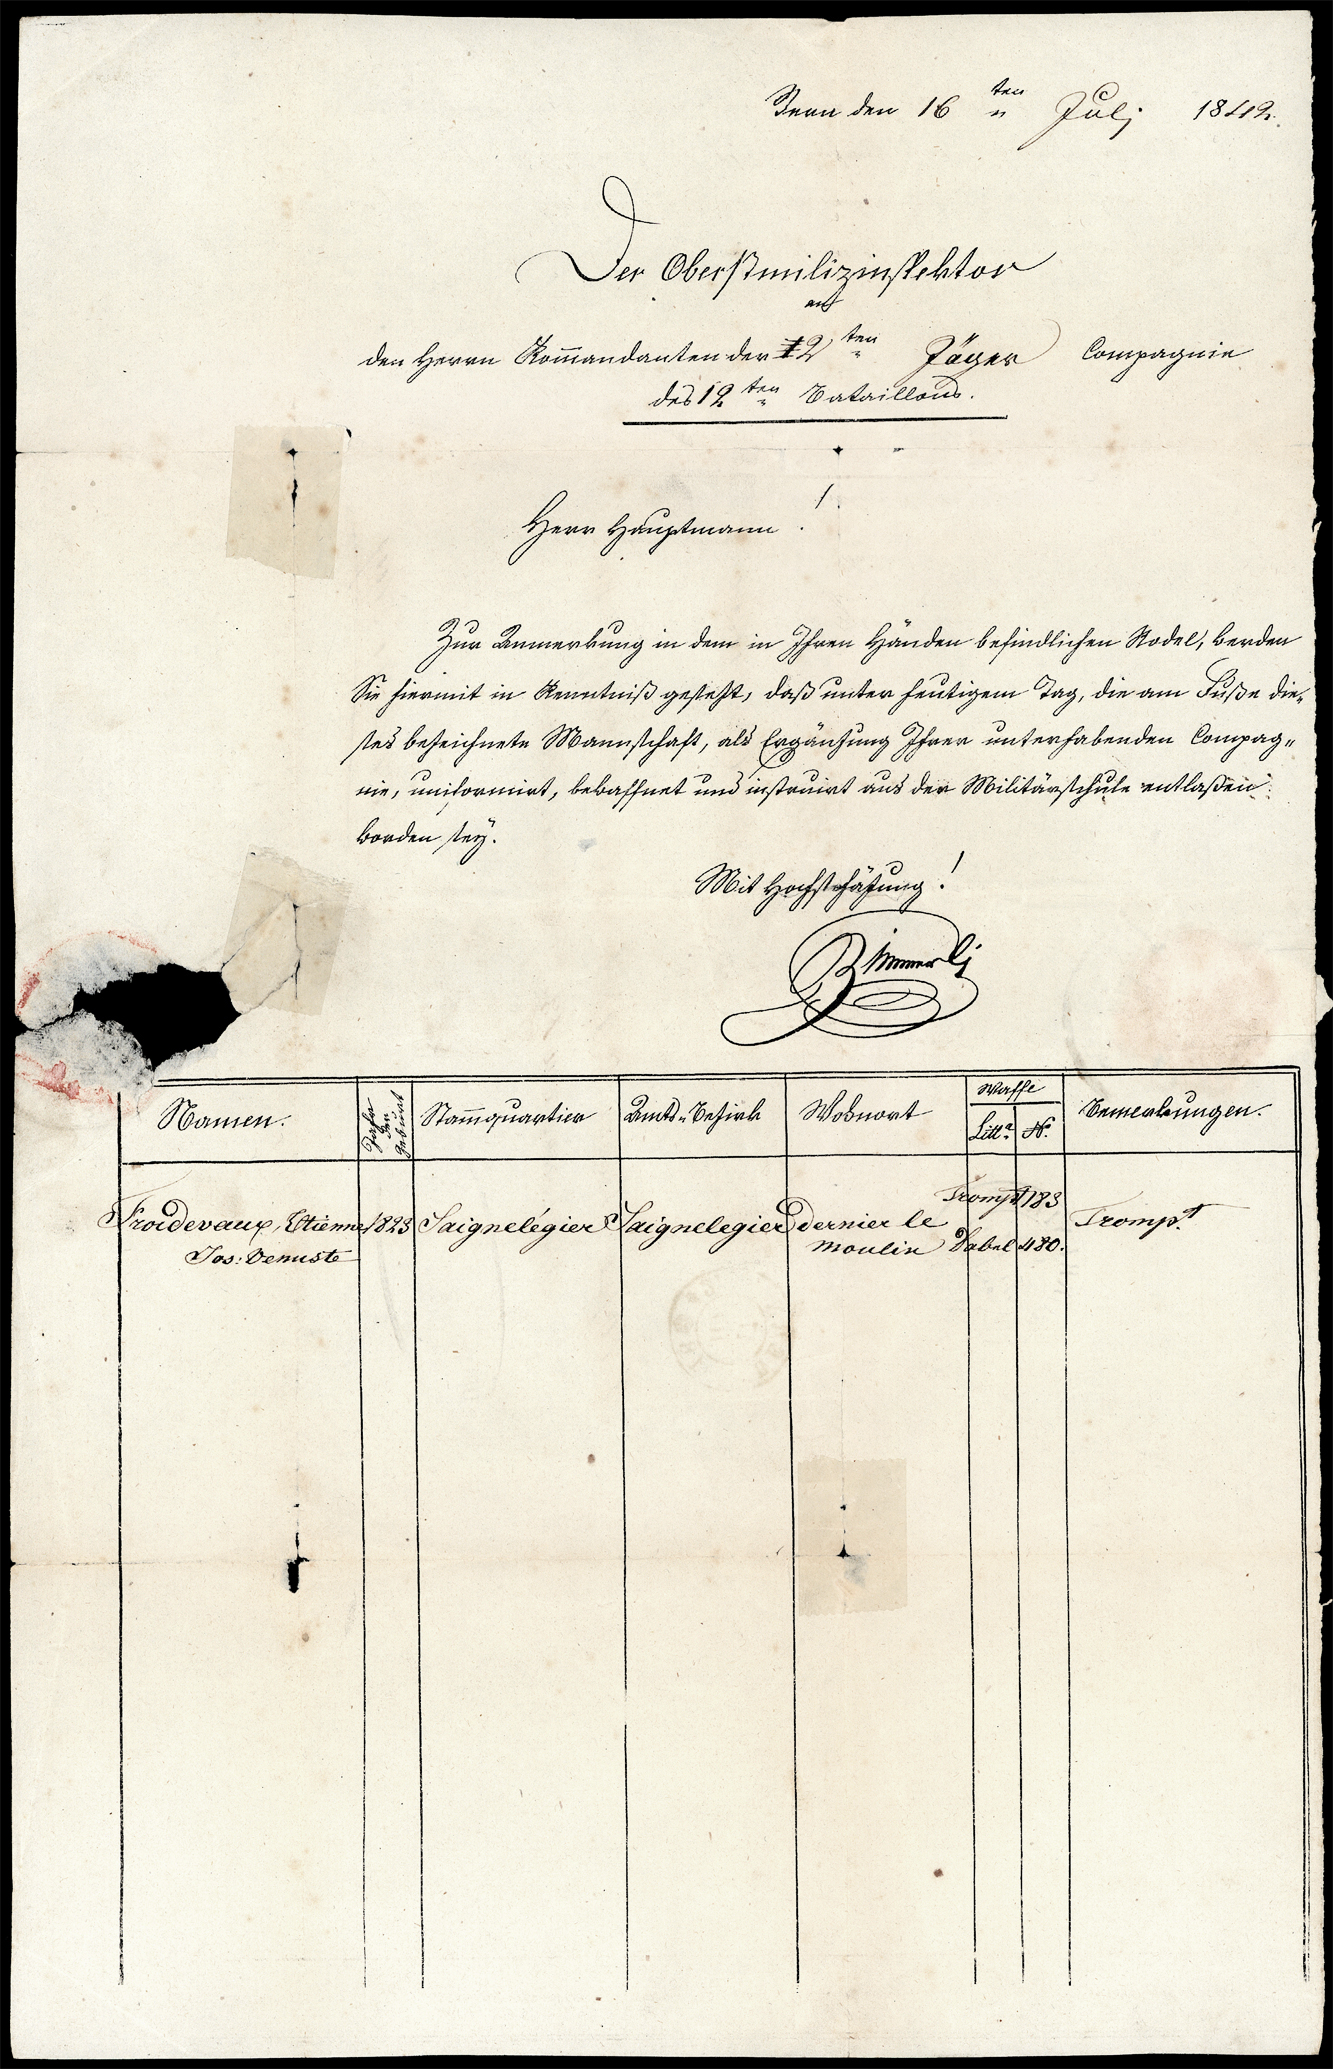 Bern den 16ten Julj 1842.
Der Oberstmilizinspektor
an
den Herrn Kommandanten der 2ten Jäger Compagnie
des 12ten Bataillons.
Herr Hauptmann!
Zur Anmerkung in dem in Ihren Händen befindlichen Rodel, werden
Sie hiermit in Kenntniß gesetzt, daß unter heutigem Tag, die am Fuße die-
ses bezeichnete Mannschaft, als Ergänzung Ihrer unterhabenden Compag-
nie, uniformirt, bewaffnet und instruirt aus der Militärschule entlaßen
worden sey.
Mit Hochschäzung!
Zimmerlj
Namen. Jahr der Geburt Stammquartier Amts-Bezirk Wohnort Waffe Littr. N°. Bemerkungen.
Froidevaux, Etienne 1823 Saignelégier Saignelegier dernier le Tromp.t 183 Tromp.t
Jos: Venuste moulin Sabel 480.